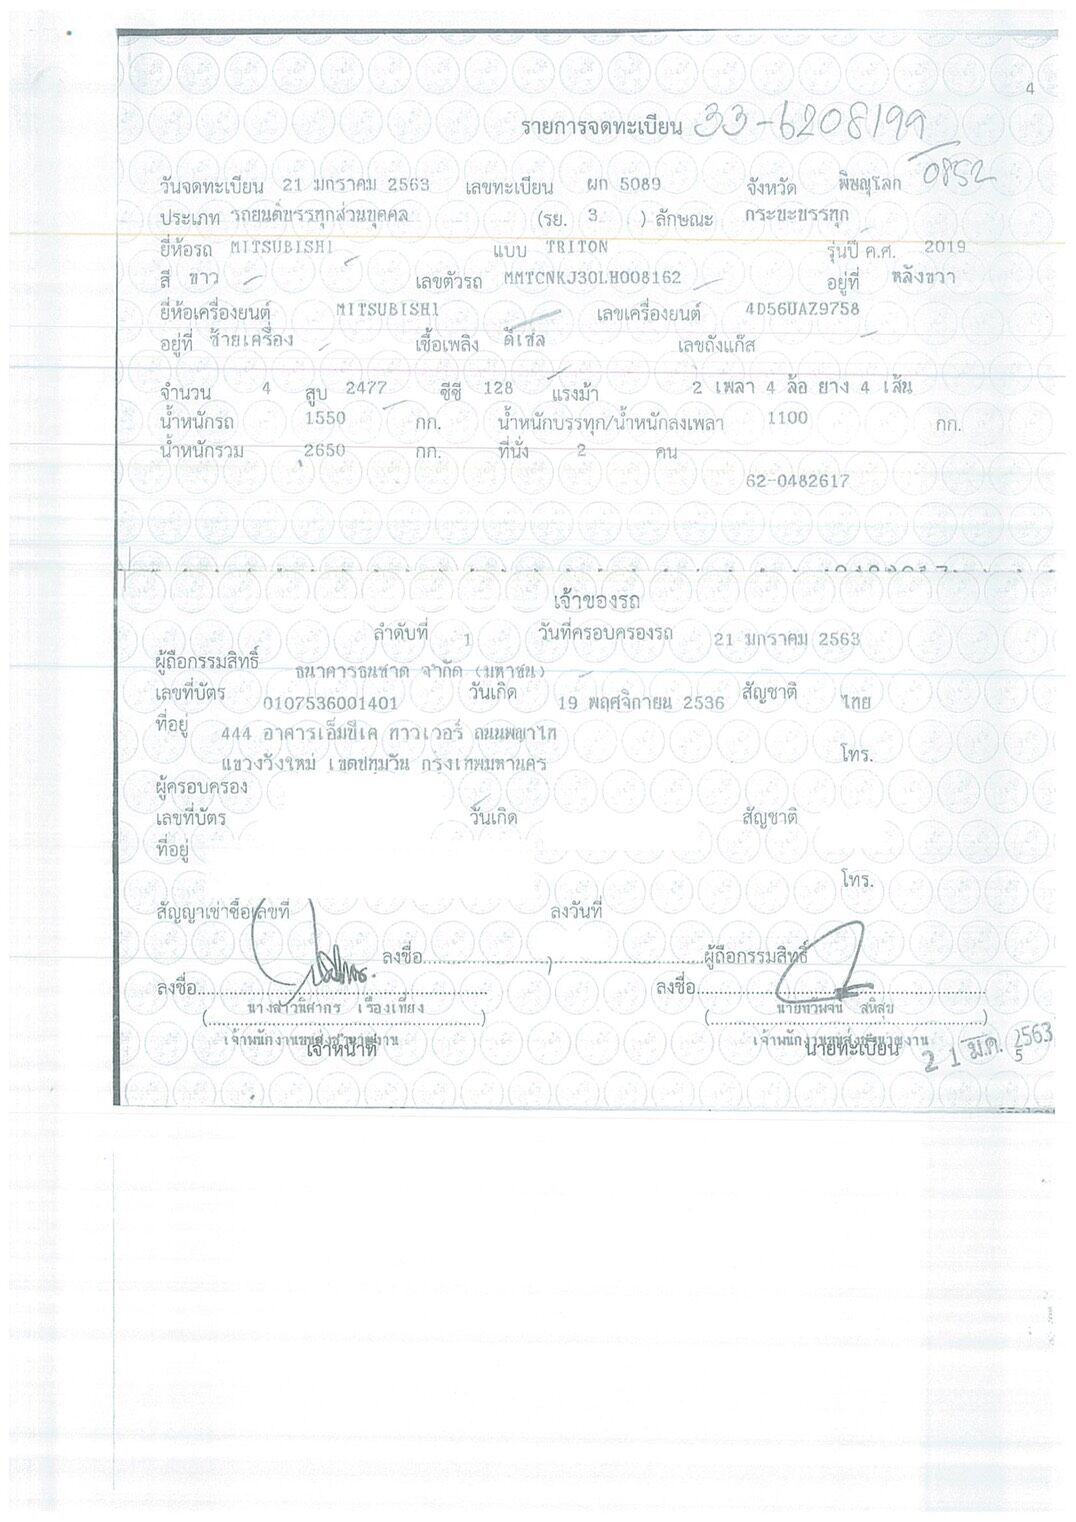 4
รายการจดทะเบียน 33-6208199
0852
วันจดทะเบียน 21 มกราคม 2563 เลขทะเบียน ผก 5089 จังหวัด พิษณุโลก
ประเภท รถยนต์บรรทุกส่วนบุคคล (รย. 3 ) ลักษณะ กระบะบรรทุก
ยี่ห้อรถ MITSUBISHI แบบ TRITON รุ่นปี ค.ศ. 2019
สี ขาว เลขตัวรถ MMTCNKJ30LH008162 อยู่ที่ หลังขวา
ยี่ห้อเครื่องยนต์ MITSUBISHI เลขเครื่องยนต์ 4D56UAZ9758
อยู่ที่ ซ้ายเครื่อง เชื้อเพลิง ดีเซล เลขถังแก๊ส
จำนวน 4 สูบ 2477 ซีซี 128 แรงม้า 2 เพลา 4 ล้อ ยาง 4 เส้น
น้ำหนักรถ 1550 กก. น้ำหนักบรรทุก/น้ำหนักลงเพลา 1100 กก.
น้ำหนักรวม 2650 กก. ที่นั่ง 2 คน
62-0482617
เจ้าของรถ
ลำดับที่ 1 วันที่ครอบครองรถ 21 มกราคม 2563
ผู้ถือกรรมสิทธิ์ ธนาคารธนชาต จำกัด (มหาชน)
เลขที่บัตร 0107536001401 วันเกิด 19 พฤศจิกายน 2536 สัญชาติ ไทย
ที่อยู่ 444 อาคารเอ็มบีเค ทาวเวอร์ ถนนพญาไท
แขวงวังใหม่ เขตปทุมวัน กรุงเทพมหานคร โทร.
ผู้ครอบครอง
เลขที่บัตร วันเกิด สัญชาติ
ที่อยู่
โทร.
สัญญาเช่าซื้อเลขที่ ลงวันที่
ลงชื่อ ผู้ถือกรรมสิทธิ์
ลงชื่อ ลงชื่อ
นางสาวนิศากร เรืองเที่ยง
เจ้าพนักงานขนส่งชำนาญงาน เจ้าพนักงานขนส่งชำนาญงาน
เจ้าหน้าที่ นายทะเบียน 21 ม.ค. 2563
5